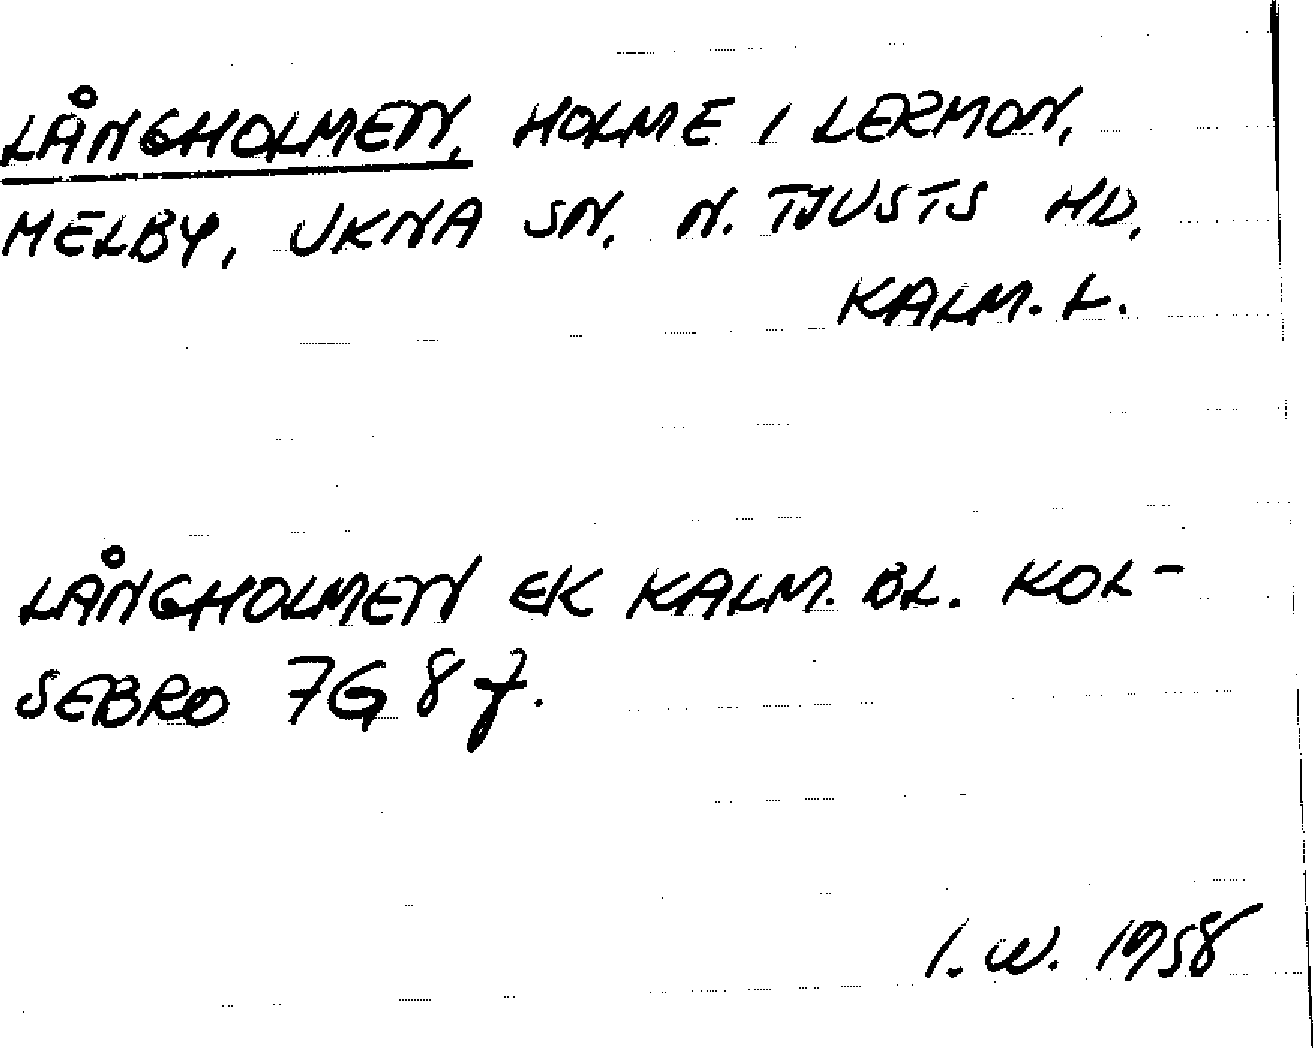 LÅNGHOLMEN, HOLME I LERMON,
MELBY, UKNA SN. N. TJUSTS HD,
KALM. L.
LÅNGHOLMEN EK KALM. BL. KOL-
SEBRO 7G 8f.
I. W. 1958